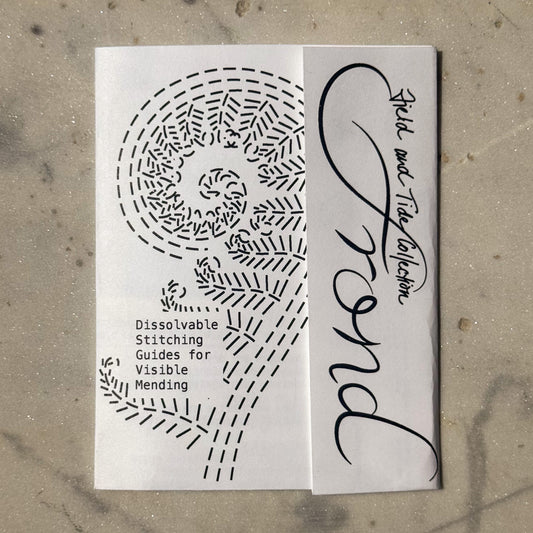 Dissolvable
Stitching
Guides for
Visible
Mending
Field and Tide Collection
Frond